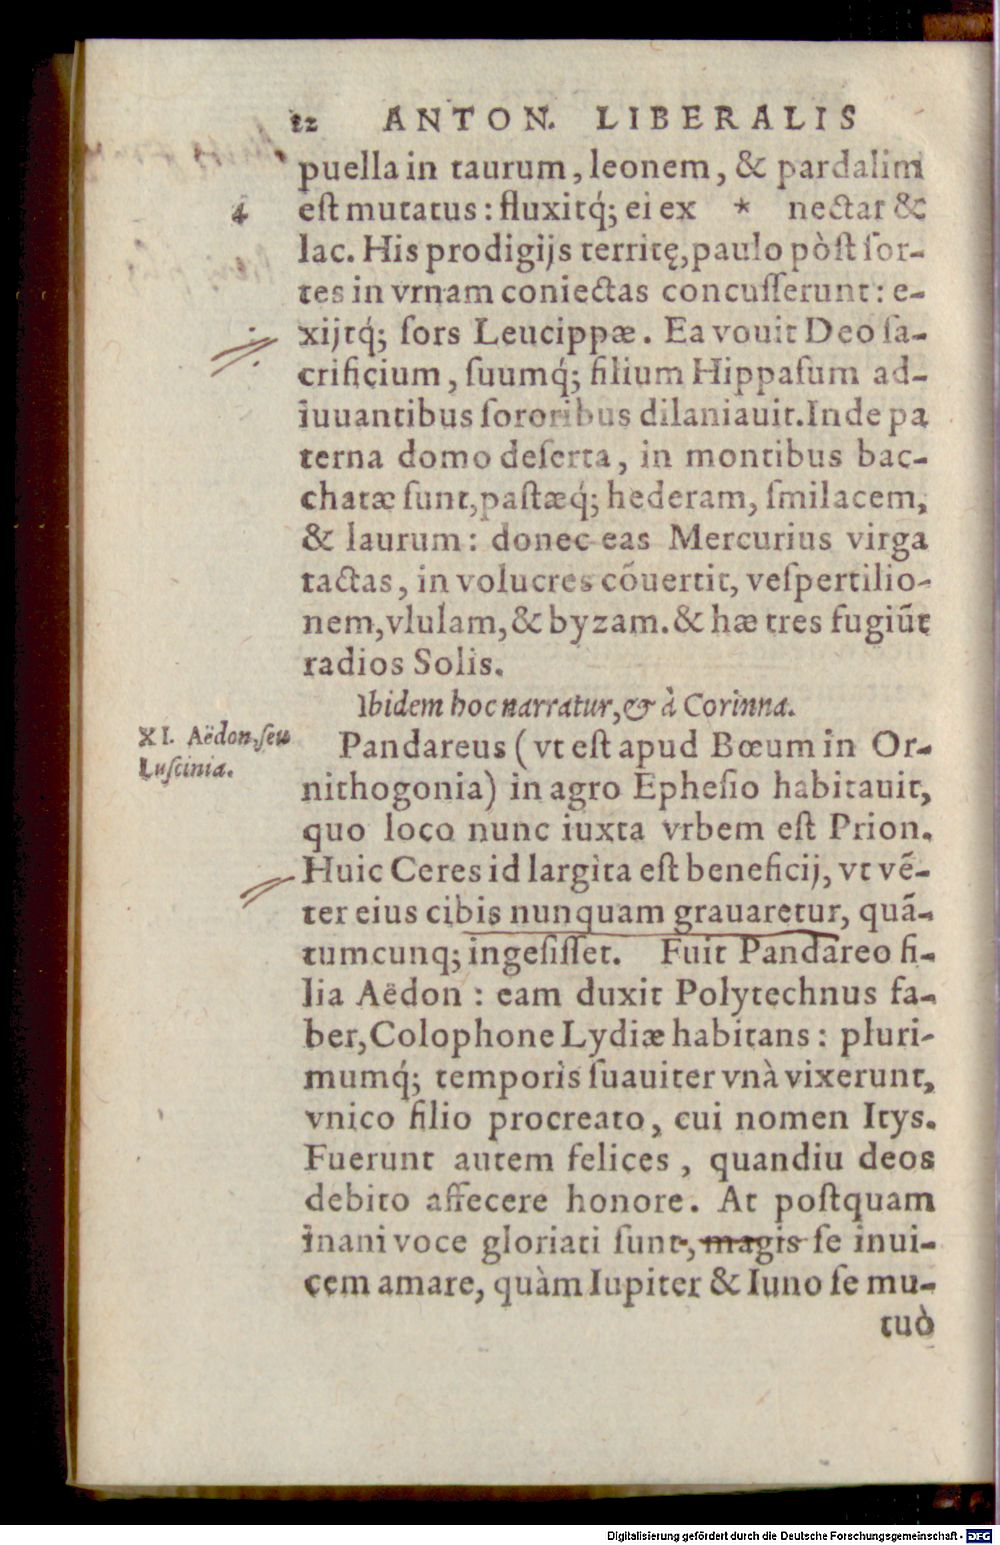 12 ANTON. LIBERALIS
puella in taurum, leonem, & pardalim
4 eſt mutatus : fluxitq́; ei ex * nectar &
lac. His prodigijs territę, paulo pòſt ſor-
tes in vrnam coniectas concuſſerunt : e-
xijtq́; ſors Leucippæ. Ea vouit Deo ſa-
crificium, ſuumq́; filium Hippaſum ad-
iuuantibus ſororibus dilaniauit. Inde pa
terna domo deſerta, in montibus bac-
chatæ ſunt, paſtæq́; hederam, ſmilacem,
& laurum : donec eas Mercurius virga
tactas, in volucres cõuertit, veſpertilio-
nem, vlulam, & byzam. & hæ tres fugiũt
radios Solis.
Ibidem hoc narratur, & à Corinna.
XI. Aëdon, ſeu
Luſcinia.
Pandareus (vt eſt apud Bœum in Or-
nithogonia) in agro Epheſio habitauit,
quo loco nunc iuxta vrbem eſt Prion.
Huic Ceres id largita eſt beneficij, vt vẽ-
ter eius cibis nunquam grauaretur, quã-
tumcunq; ingeſiſſet. Fuit Pandareo fi-
lia Aëdon : eam duxit Polytechnus fa-
ber, Colophone Lydiæ habitans : pluri-
mumq́; temporis ſuauiter vnà vixerunt,
vnico filio procreato, cui nomen Itys.
Fuerunt autem felices, quandiu deos
debito affecere honore. At poſtquam
inani voce gloriati ſunt, magis ſe inui-
cem amare, quàm Iupiter & Iuno ſe mu-
tuò
Digitalisierung gefördert durch die Deutsche Forschungsgemeinschaft - DFG